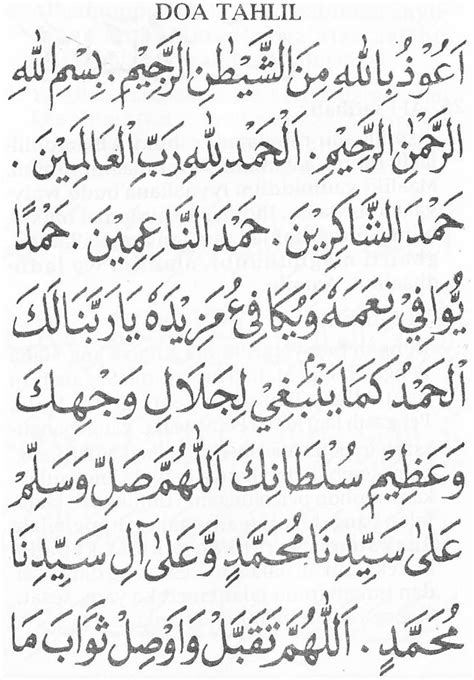 DOA TAHLIL
اَعُوْذُ بِاللهِ مِنَ الشَّيْطٰنِ الرَّجِيْمِ. بِسْمِ اللهِ
الرَّحْمٰنِ الرَّحِيْمِ. اَلْحَمْدُ لِلّٰهِ رَبِّ الْعَالَمِيْنَ.
حَمْدَ الشَّاكِرِيْنَ. حَمْدَ النَّاعِمِيْنَ. حَمْدًا
يُّوَافِيْ نِعَمَهٗ وَيُكَافِئُ مَزِيْدَهٗ يَا رَبَّنَا لَكَ
الْحَمْدُ كَمَا يَنْبَغِيْ لِجَلَالِ وَجْهِكَ
وَعَظِيْمِ سُلْطَانِكَ اَللّٰهُمَّ صَلِّ وَسَلِّمْ
عَلٰى سَيِّدِنَا مُحَمَّدٍ وَّعَلٰى آلِ سَيِّدِنَا
مُحَمَّدٍ. اَللّٰهُمَّ تَقَبَّلْ وَاَوْصِلْ ثَوَابَ مَا